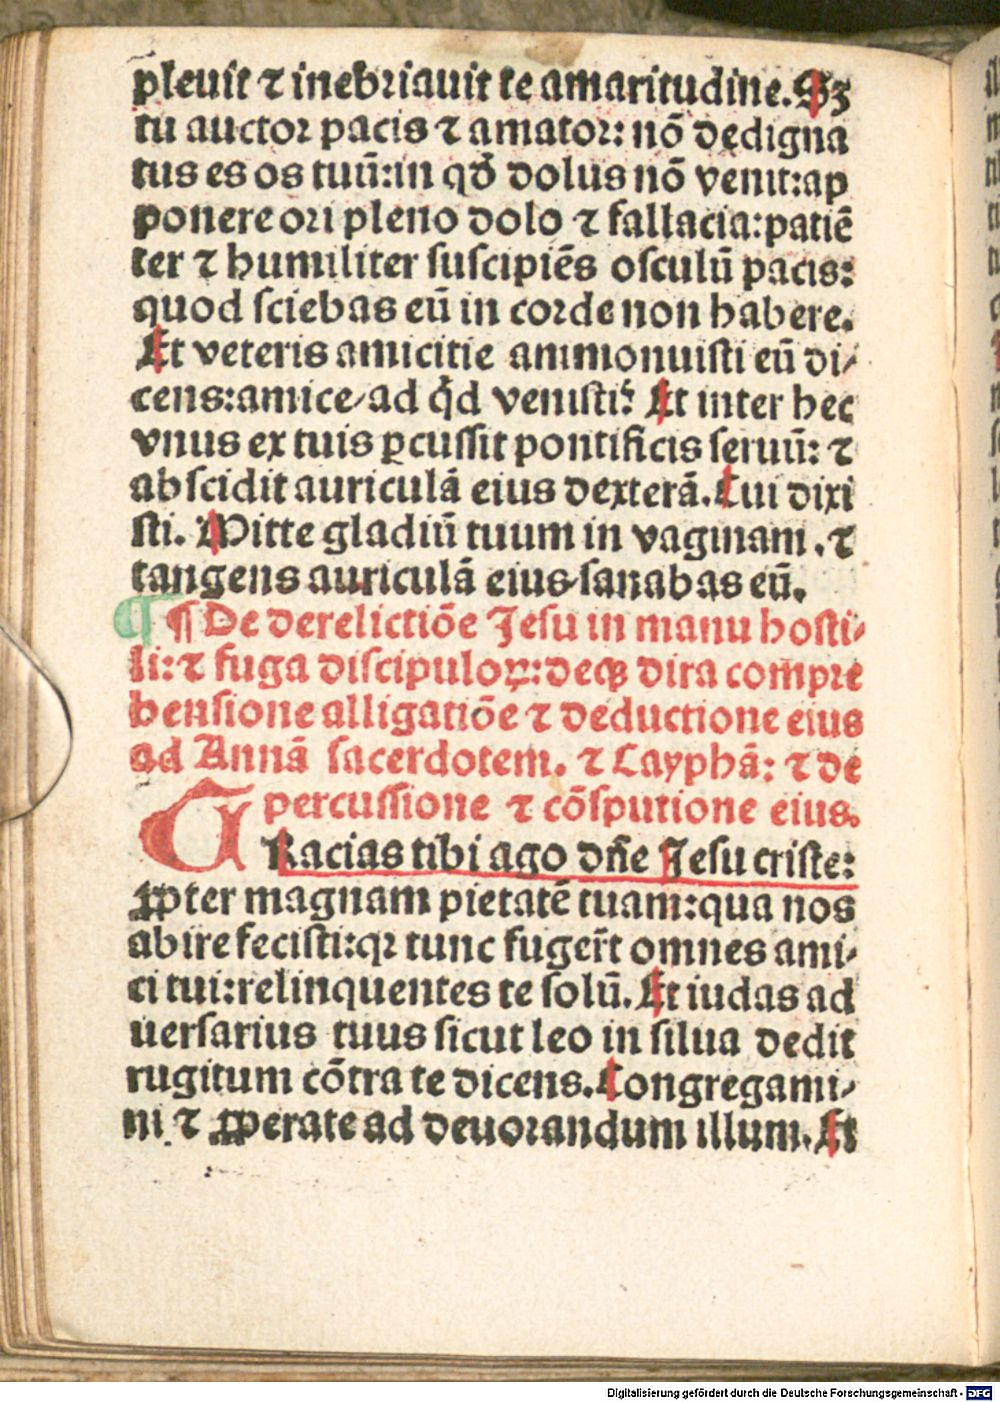 pleuit ⁊ inebriauit te amaritudine. Sꝫ
tu auctoꝛ pacis ⁊ amatoꝛ: nō dedigna
tus es os tuū: in qđ dolus nō venit: ap
ponere oꝛi pleno dolo ⁊ fallacia: patiē
ter ⁊ humiliter ſuſcipiēs oſculū pacis:
quod ſciebas eū in coꝛde non habere.
Et veteris amicitie ammonuiſti eū di⸗
cens: amice/ ad qͥd veniſti? Et inter hec
vnus ex tuis ꝑcuſſit pontificis ſeruū: ⁊
abſcidit auriculā eius dexterā. Cui dixi
ſti. Mitte gladiū tuum in vaginam. ⁊
tangens auriculā eius/ ſanabas eū.
¶ ¶ De derelictiōe Jeſu in manu hoſti⸗
li: ⁊ fuga diſcipuloꝝ: deqꝫ dira compꝛe
henſione alligatiōe ⁊ deductione eius
ad Annā ſacerdotem. ⁊ Cayphā: ⁊ de
percuſſione ⁊ cōſputione eius.
GRacias tibi ago dn̄e Jeſu criſte:
ꝓpter magnam pietatē tuam: qua nos
abire feciſti: qꝛ tunc fuger̄t omnes ami⸗
ci tui: relinquentes te ſolū. Et iudas ad
uerſarius tuus ſicut leo in ſilua dedit
rugitum cōtra te dicens. Congregami⸗
ni ⁊ ꝓperate ad deuoꝛandum illum. Et
Digitalisierung gefördert durch die Deutsche Forschungsgemeinschaft - DFG